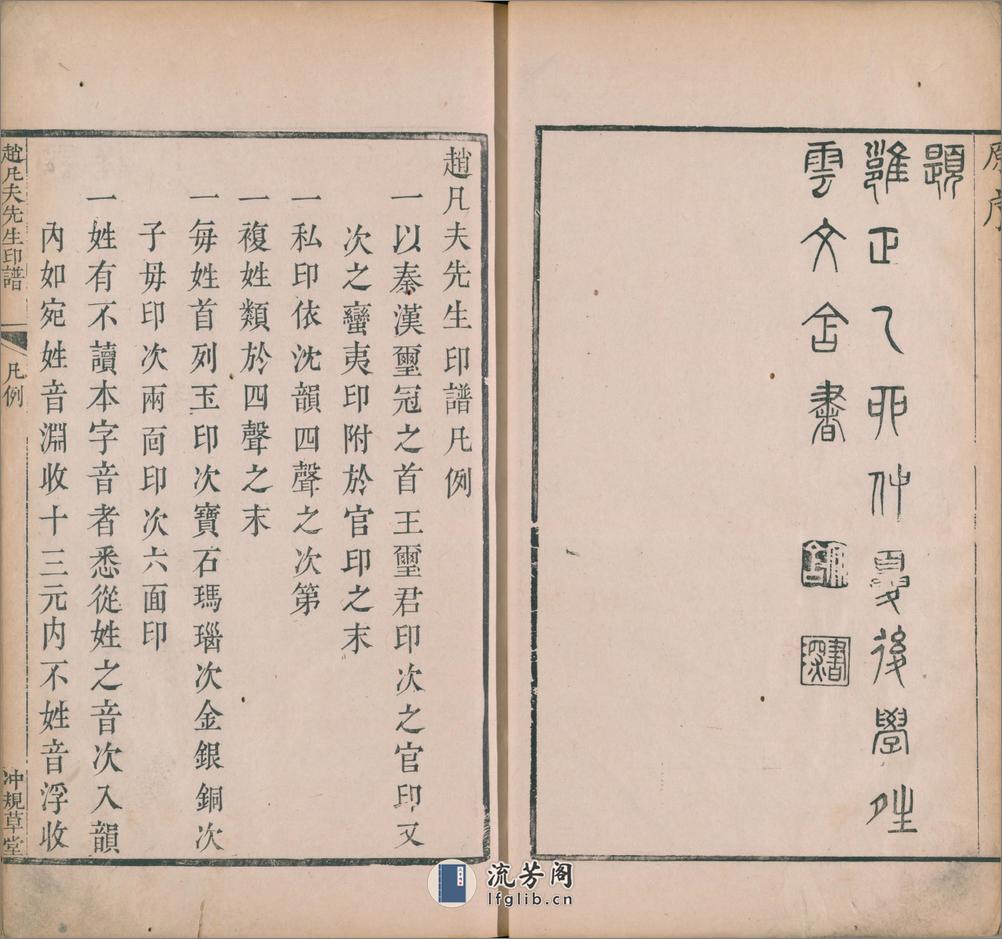 原序
題
雍正乙卯仲夏後學
雲文書
趙凡夫先生印譜凡例
一以秦漢璽冠之首王璽君印次之官印又
次之蠻夷印附於官印之末
一私印依沈韻四聲之次第
一複姓類於四聲之末
一每姓首列玉印次寶石瑪瑙次金銀銅次
子母印次兩面印次六面印
一姓有不讀本字音者悉從姓之音次入韻
內如宛姓音淵收十三元內不姓音浮收
趙凡夫先生印譜
凡例
冲規草堂
流芳阁
lfglib.cn